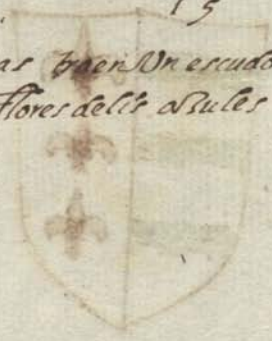 15
as traen Un escudo
flores delis aZules